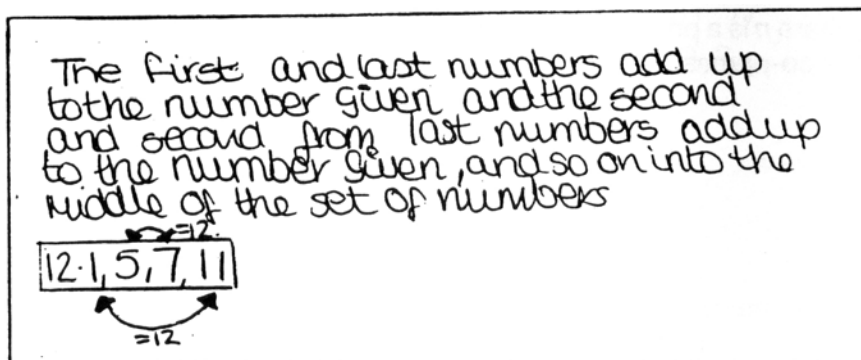 The first and last numbers add up
to the number given and the second
and second from last numbers add up
to the number given, and so on into the
middle of the set of numbers
=12
12·1, 5, 7, 11
=12